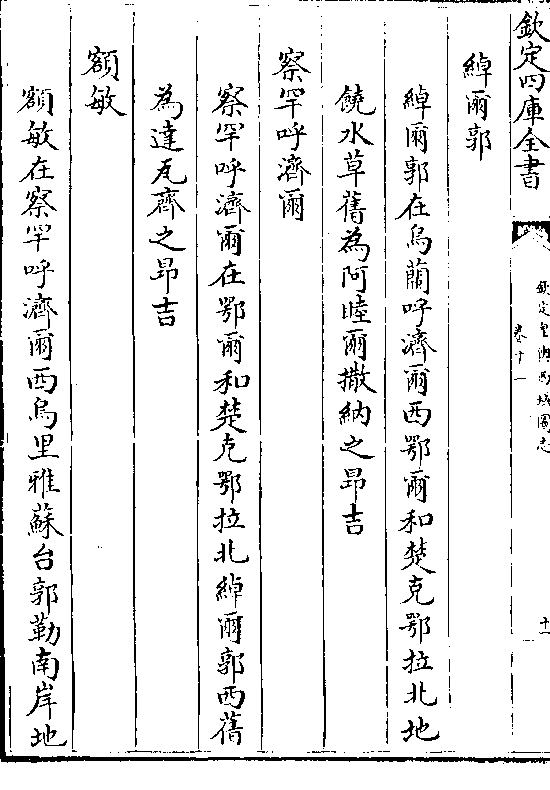 欽定四庫全書
欽定皇輿西域圖志
卷十一
十一
綽爾郭
綽爾郭在烏蘭呼濟爾西鄂爾和楚克鄂拉北地
饒水草舊為阿睦爾撒納之昂吉
察罕呼濟爾
察罕呼濟爾在鄂爾和楚克鄂拉北綽爾郭西舊
為達瓦齊之昂吉
額敏
額敏在察罕呼濟爾西烏里雅蘇台郭勒南岸地